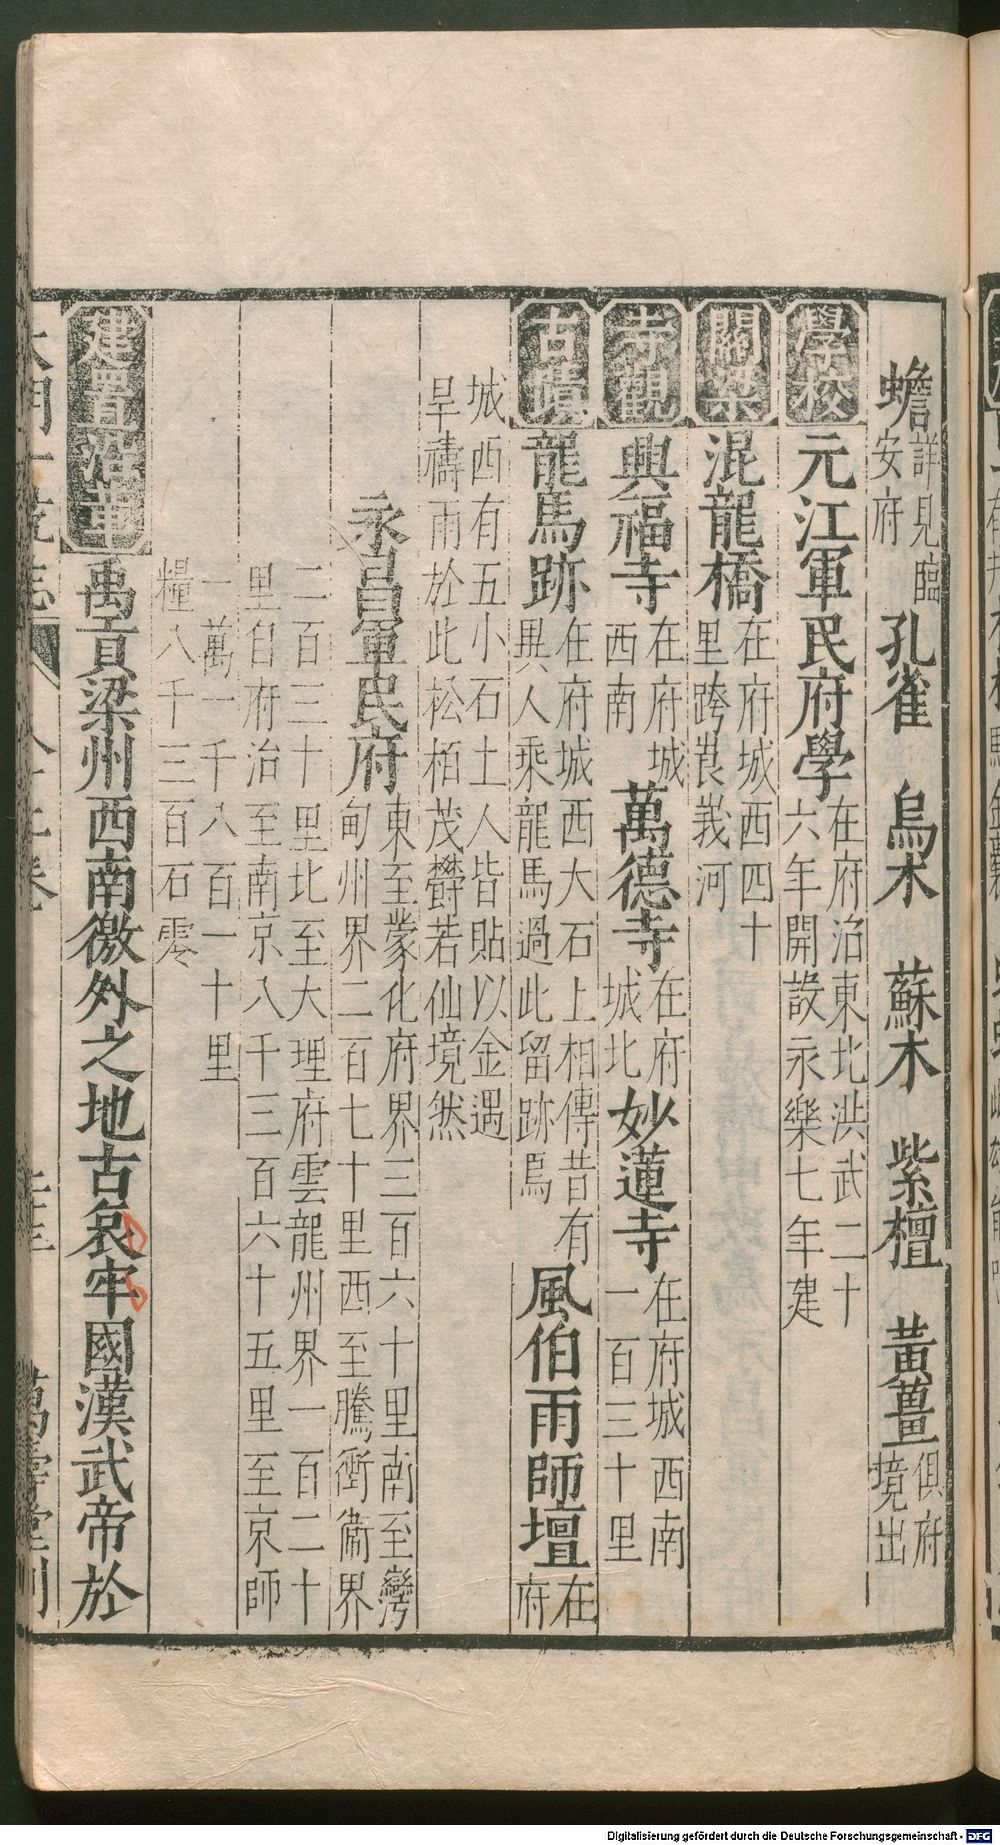 蟾詳見臨安府 孔雀 烏木 蘇木 紫檀 黃薑俱府境出
學校 元江軍民府學在府治東北洪武二十六年開設永樂七年建
關梁 混龍橋在府城西四十里跨莨峩河
寺觀 興福寺在府城西南 萬德寺在府城北 妙蓮寺在府城西南一百三十里
古蹟 龍馬跡在府城西大石上相傳昔有異人乘龍馬過此留跡焉 風伯雨師壇在府
城西有五小石土人皆貼以金遇旱禱雨於此松栢茂欝若仙境然
永昌軍民府東至蒙化府界三百六十里南至灣甸州界二百七十里西至騰衝衞界
二百三十里北至大理府雲龍州界一百二十里自府治至南京八千三百六十五里至京師
一萬一千八百一十里
糧八千三百石零
建置沿革 禹貢梁州西南徼外之地古哀牢國漢武帝於
萬壽堂刊
Digitalisierung gefördert durch die Deutsche Forschungsgemeinschaft - DFG